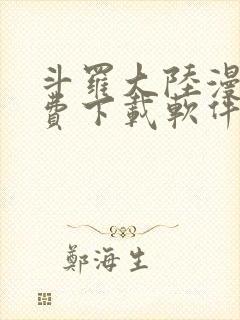 斗羅大陸漫
費下載軟件
鄭海生